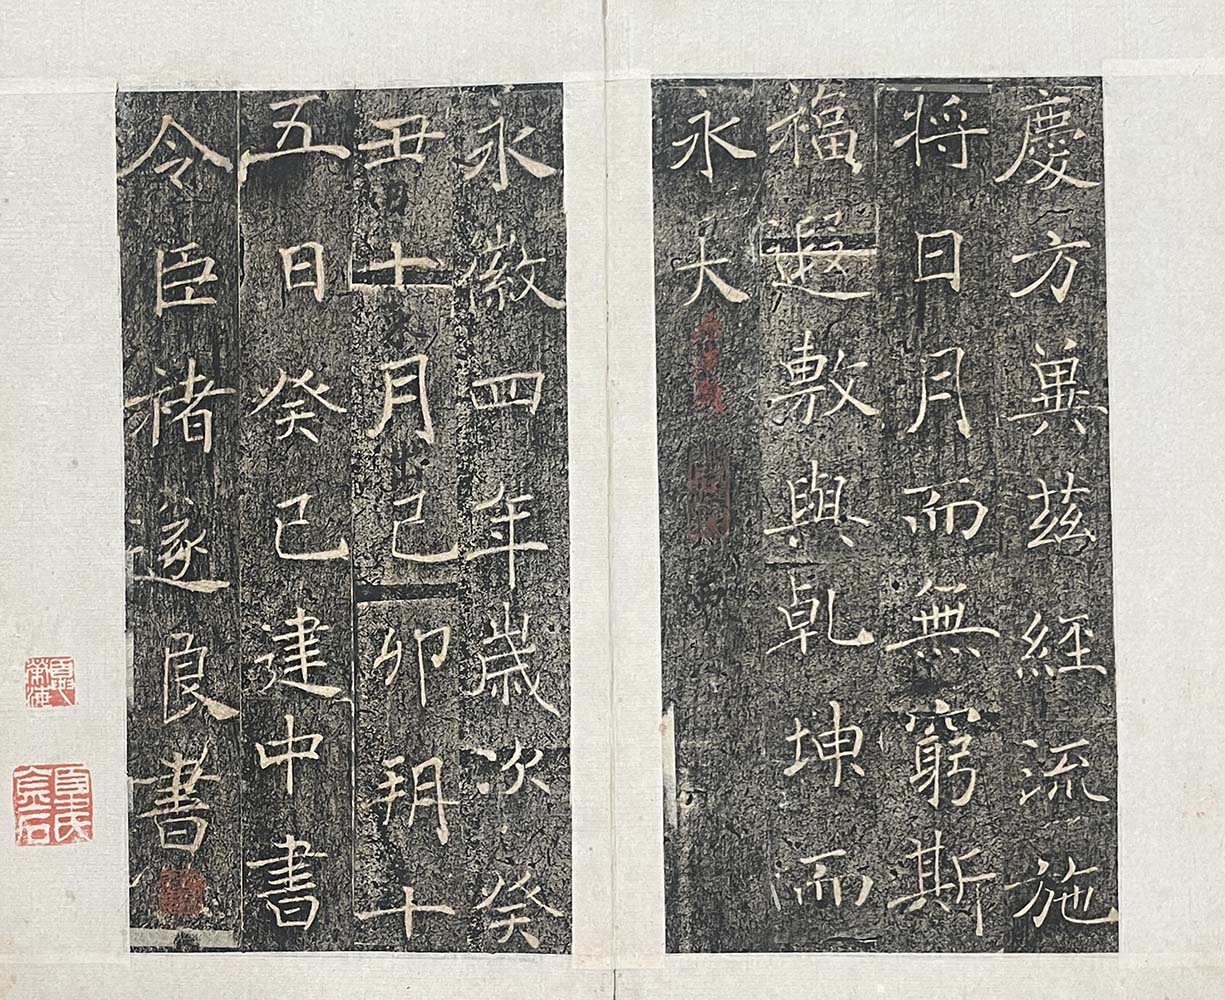 慶方兾茲經流施
将日月而無窮斯
福遐敷與乹坤而
永大
永徽四年歲次癸
丑十月己卯朔十
五日癸巳建中書
令臣褚遂良書